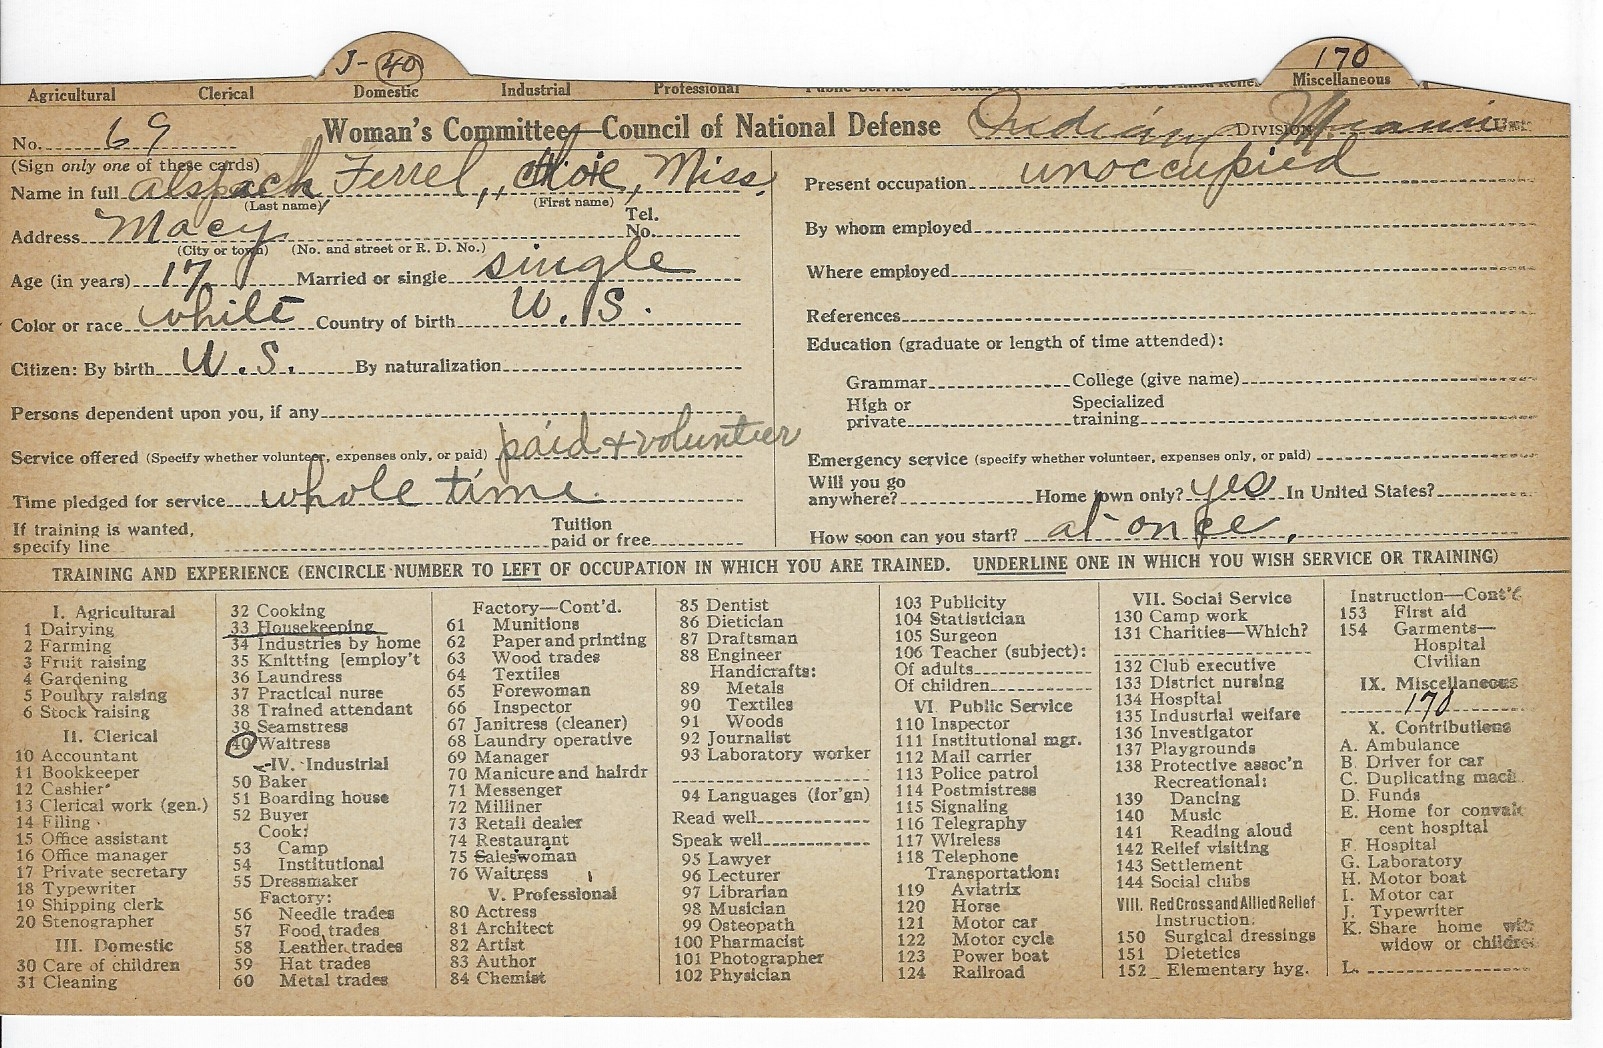 J-40 170
Agricultural Clerical Domestic Industrial Professional Miscellaneous
No. 69 Woman's Committee—Council of National Defense Indiana DIVISION Miami
(Sign only one of these cards)
Name in full Alspach, Ferrel, Miss.
(Last name) (First name)
Address Macy Tel. No.
(City or town) (No. and street or R. D. No.)
Age (in years) 17 Married or single single
Color or race white Country of birth U. S.
Citizen: By birth U. S. By naturalization
Persons dependent upon you, if any
Service offered (Specify whether volunteer, expenses only, or paid) paid + volunteer
Time pledged for service whole time
If training is wanted, specify line Tuition paid or free
Present occupation unoccupied
By whom employed
Where employed
References
Education (graduate or length of time attended):
Grammar College (give name)
High or private Specialized training
Emergency service (specify whether volunteer, expenses only, or paid)
Will you go anywhere? Home town only? yes In United States?
How soon can you start? at once.
TRAINING AND EXPERIENCE (ENCIRCLE NUMBER TO LEFT OF OCCUPATION IN WHICH YOU ARE TRAINED. UNDERLINE ONE IN WHICH YOU WISH SERVICE OR TRAINING)
I. Agricultural
1 Dairying
2 Farming
3 Fruit raising
4 Gardening
5 Poultry raising
6 Stock raising
II. Clerical
10 Accountant
11 Bookkeeper
12 Cashier
13 Clerical work (gen.)
14 Filing
15 Office assistant
16 Office manager
17 Private secretary
18 Typewriter
19 Shipping clerk
20 Stenographer
III. Domestic
30 Care of children
31 Cleaning
32 Cooking
33 Housekeeping
34 Industries by home
35 Knitting [employ't
36 Laundress
37 Practical nurse
38 Trained attendant
39 Seamstress
40 Waitress
IV. Industrial
50 Baker
51 Boarding house
52 Buyer
Cook:
53 Camp
54 Institutional
55 Dressmaker
Factory:
56 Needle trades
57 Food trades
58 Leather trades
59 Hat trades
60 Metal trades
Factory—Cont'd.
61 Munitions
62 Paper and printing
63 Wood trades
64 Textiles
65 Forewoman
66 Inspector
67 Janitress (cleaner)
68 Laundry operative
69 Manager
70 Manicure and hairdr
71 Messenger
72 Milliner
73 Retail dealer
74 Restaurant
75 Saleswoman
76 Waitress
V. Professional
80 Actress
81 Architect
82 Artist
83 Author
84 Chemist
85 Dentist
86 Dietician
87 Draftsman
88 Engineer
Handicrafts:
89 Metals
90 Textiles
91 Woods
92 Journalist
93 Laboratory worker
94 Languages (for'gn)
Read well
Speak well
95 Lawyer
96 Lecturer
97 Librarian
98 Musician
99 Osteopath
100 Pharmacist
101 Photographer
102 Physician
103 Publicity
104 Statistician
105 Surgeon
106 Teacher (subject):
Of adults
Of children
VI. Public Service
110 Inspector
111 Institutional mgr.
112 Mail carrier
113 Police patrol
114 Postmistress
115 Signaling
116 Telegraphy
117 Wireless
118 Telephone
Transportation:
119 Aviatrix
120 Horse
121 Motor car
122 Motor cycle
123 Power boat
124 Railroad
VII. Social Service
130 Camp work
131 Charities—Which?
132 Club executive
133 District nursing
134 Hospital
135 Industrial welfare
136 Investigator
137 Playgrounds
138 Protective assoc'n
Recreational:
139 Dancing
140 Music
141 Reading aloud
142 Relief visiting
143 Settlement
144 Social clubs
VIII. Red Cross and Allied Relief
Instruction:
150 Surgical dressings
151 Dietetics
152 Elementary hyg.
Instruction—Cont'd.
153 First aid
154 Garments—
Hospital
Civilian
IX. Miscellaneous
170
X. Contributions
A. Ambulance
B. Driver for car
C. Duplicating mach.
D. Funds
E. Home for convales
cent hospital
F. Hospital
G. Laboratory
H. Motor boat
I. Motor car
J. Typewriter
K. Share home with
widow or children
L.